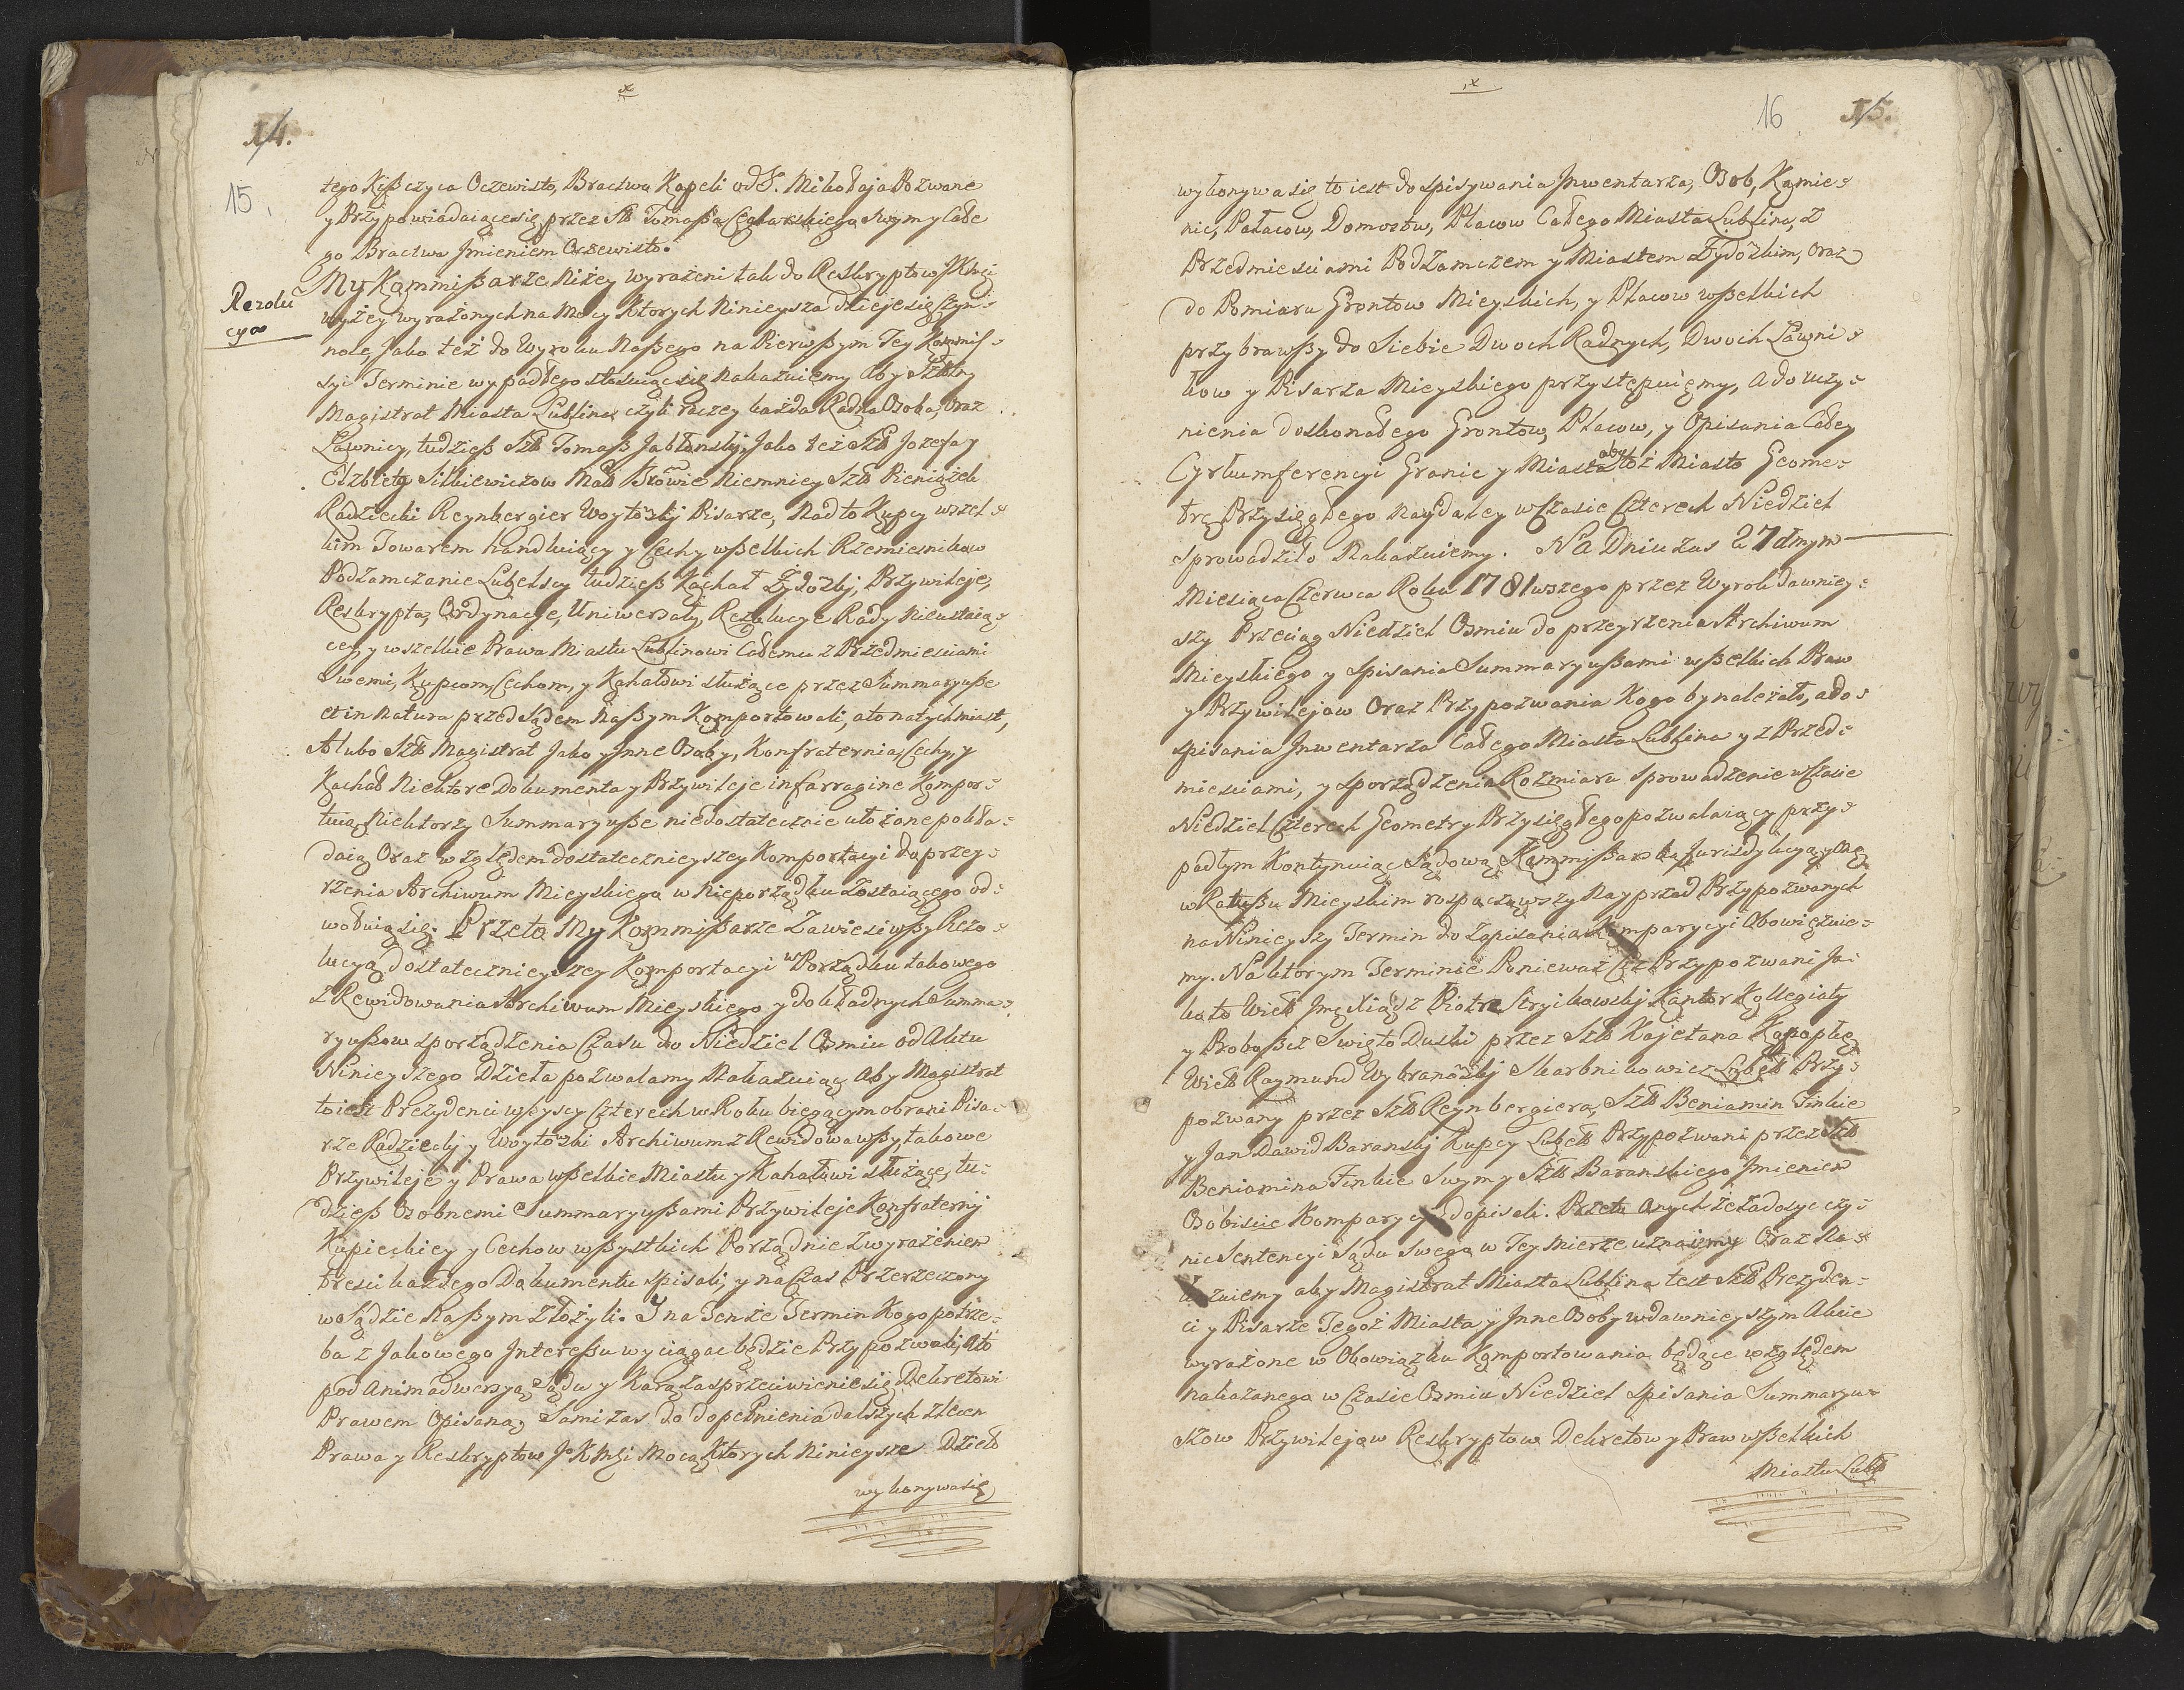 14.
15.
tego Kiszczyca Oczewisto, Bractwa Kapeli od S. Mikołaja Pozwane
y Przypowiadaiące się przez Szl: Tomasza Ceglarskiego Swym y Całe
go Bractwa Jmieniem Oczewisto.
Rezolu
cya
My Kommißarze Niżey wyrażeni tak do Reskryptow JKMci
wyżey wyrażonych na Mocy Ktorych Ninieysza dzieje się Czyn-
nosc, Jako też do Wyroku Naßego na Pierwßym Tey Kommis-
syi Terminie wypadłego stosuiąc się Nakazuiemy Aby Szltny
Magistrat Miasta Lublina czyli raczey każda Radna Osoba, oraz
Ławnicy, tudzieß Szl: Tomaß Jabłonskj, Jako też Szl: Jozefa y
Elzbieta Sitkiewiczow Małżkowie Niemniey Szl: Pieniążek
Radziecki Reynbergier Woytowskj Pisarze, Nadto Kupcy wszel-
kim Towarem handluiący y Cechy wßelkich Rzemiesnikow
Podzamczanie Lubelscy tudzieß Kachał Żydowskj, Przywileje,
Reskrypta, Ordynacye, Uniwersały, Rezolucye Rady Nieustaią-
cey, y wszelkie Prawa Miastu Lublinowi Całemu z Przedmiesciami
Swemi, Kupcom Cechom, y Kahałowi służące przez Summaryuße
et in Natura przed Sądem Naßym Komportowali, a to natychmiast,
A lubo Szl: Magistrat Jako y Jnne Osoby, Konfraternia, Cechy, y
Kachał Niektore Dokumenta y Przywileje in farragine Kompor-
tuią, Niektorzy Summaryuße niedostatecznie ułożone pokła-
daią Oraz względem dostatecznieyszey Komportacyi do przey-
rzenia Archiwum Mieyskiego w Nieporządku Zostaiącego od-
wołuią się. Przeto My Kommißarze Zawiesiwßy Rezo-
lucyą dostatecznieyszey Komportacyi w Porządku takowego
z Rewidowania Archiwum Mieyskiego y dokładnych Summa-
ryußow sporządzenia Czasu do Niedziel Osmiu od Aktu
Ninieyszego Dzieła pozwalamy Nakazuiąc Aby Magistrat
to iest Prezydenci wßyscy Czterech w Roku biegącym obrani Pisa-
rze Radzieckj y Woytowski Archiwum z Rewidowawßy takowe
Przywileje y Prawa wßelkie Miastu y Kahałowi służące, tu-
dzieß Osobnemi Summaryußami Przywileje Konfraternij
Kupieckiey y Cechow wßystkich Porządnie z wyrażeniem
tresci każdego Dokumentu spisali, y na Czas Przerzeczony
w Sądzie Naßym złożyli. Y na Tenże Termin Kogo potrze-
ba z Jakowego Jnteressu wyciągac będzie Przypozwali, A to
pod Animadwersyą Sądu y Karą za sprzeciwienie się Dekretowi
Prawem Opisaną, Sami zas do dopełnienia dalszych zlecen
Prawa y Reskryptow J K Mci Mocą Ktorych Ninieysze Dzieło
wykonywa się
16
15.
wykonywa się to iest do spisywania Jnwentarza, Osob, Kamie-
nic, Pałacow, Domostw, Placow Całego Miasta Lublina, z
Przedmiesciami Podzamczem y Miastem Żydowskim, oraz
do Pomiaru Grontow Mieyskich, y Placow wßelkich
przybrawßy do Siebie Dwoch Radnych, Dwoch Ławni-
kow y Pisarza Mieyskiego przystępuiemy, a do uczy-
nienia doskonałego Grontow, Placow, y Opisania Całey
Cyrkumferencyi Granic y Miasta aby toż Miasto Geome-
trę Przysięgłego naydaley w Czasie Czterech Niedziel
sprowadziło Nakazuiemy. Na Dniu zas 27 dmym
Miesiąca Czerwca Roku 1781wszego przez Wyrok dawniey-
szy Przeciąg Niedziel Osmiu do przeyrzenia Archiwum
Mieyskiego y spisania Summaryußami wßelkich Praw
y Przywilejow Oraz Przypozwania Kogo by należało, a do
spisania Jnwentarza Całego Miasta Lublina y z Przed-
miesciami, y sporządzenia Rozmiaru sprowadzenie w Czasie
Niedziel Czterech Geometry Przysięgłego pozwalaiący przy-
padłym Kontynuiąc Sądową Kommißarską Jurisdykcyą
w Ratußu Mieyskim rospocząwszy Nayprzod Przypozwanych
na Ninieyszy Termin do Zapisania Komparycyi Obowiązuie-
my. Na ktorym Terminie Ponieważ Ci Przypozwani Ja-
ko to Wiel: Jmc Xiądz Piotr Stryikowskj Kantor Kollegiaty
y Proboßcz Święto Duski przez Szl: Kajetana Kanopkę
Wiel: Raymund Wybranowskj Skarbnikowicz Lubel: Przy-
pozwany przez Szl: Reynbergiera, Szl: Beniamin Finkie
y Jan Dawid Baranskj Kupcy Lubel: Przypozwani przez Szl:
Beniamina Finkie Swym y Szl: Baranskiego Jmieniem
Osobiscie Komparycye dopisali. Przeto Onych że zadosyc czy-
nie Sentencyi Sądu Swego w Tey Mierze uznaiemy Oraz Na-
kazuiemy aby Magistrat Miasta Lublina test Szl: Prezyden-
ci y Pisarze Tegoż Miasta y Jnne Osoby w dawnieyszym Akcie
wyrażone w Obowiązku Komportowania będące względem
nakazanego w Czasie Osmiu Niedziel spisania Summaryu-
szow Przywilejow Reskryptow Dekretow y Praw wßelkich
Miastu Lubl: